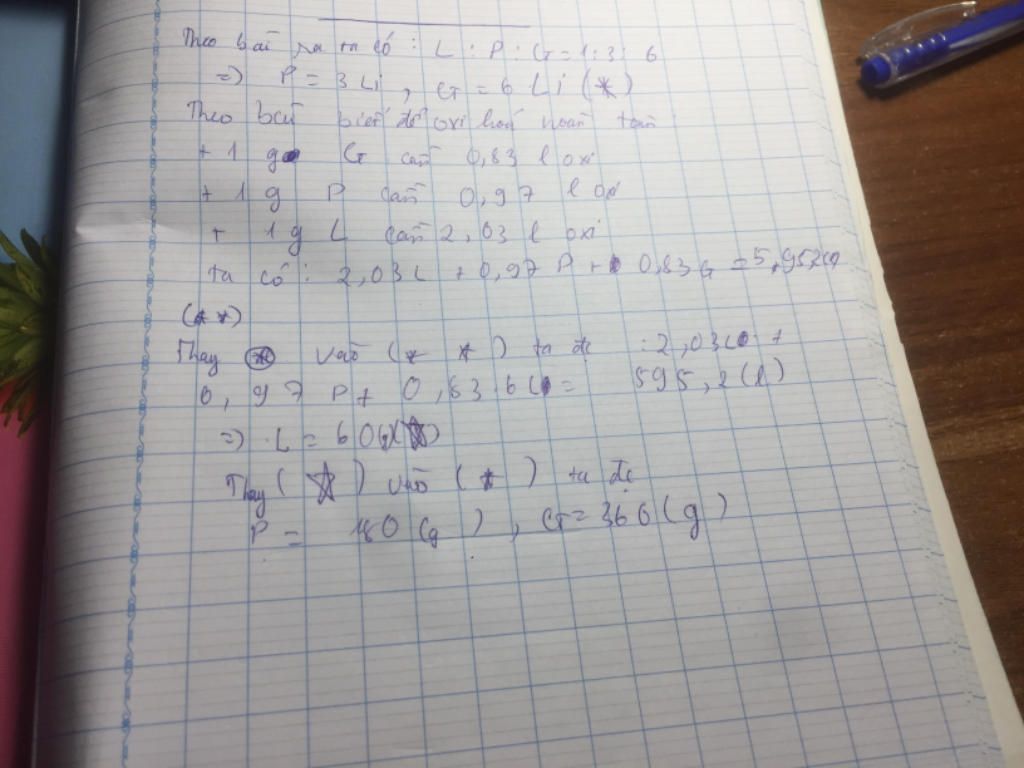 Theo bài ra ta có : L : P : G = 1 : 3 : 6
=> P = 3 Li , G = 6 Li (*)
Theo bài biết để oxi hoá hoàn toàn
+ 1 g G cần 0,83 l oxi
+ 1 g P cần 0,97 l oxi
+ 1 g L cần 2,03 l oxi
ta có : 2,03 L + 0,97 P + 0,83 G =
(* *)
Thay (*) vào (* *) ta đc : 2,03L +
0,97 P + 0,83. 6L = 595,2 (l)
=> L = 60
Thay (☆) vào (*) ta đc
P = 180 (g) , G = 360 (g)